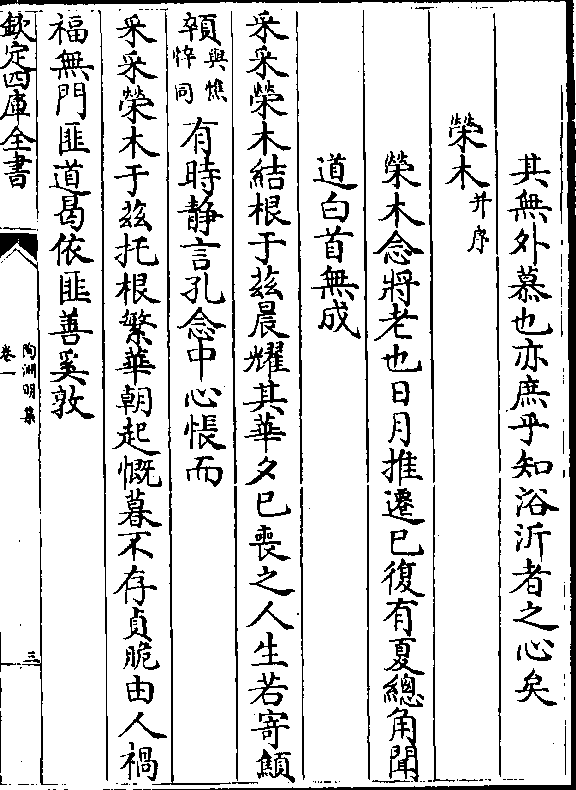 其無外慕也亦庶乎知浴沂者之心矣
榮木并序
榮木念將老也日月推遷已復有夏總角聞
道白首無成
采采榮木結根于茲晨耀其華夕已喪之人生若寄顦
顇與憔悴同有時静言孔念中心悵而
采采榮木于茲托根繁華朝起慨暮不存貞脆由人禍
福無門匪道曷依匪善奚敦
欽定四庫全書
陶淵明集
卷一
三